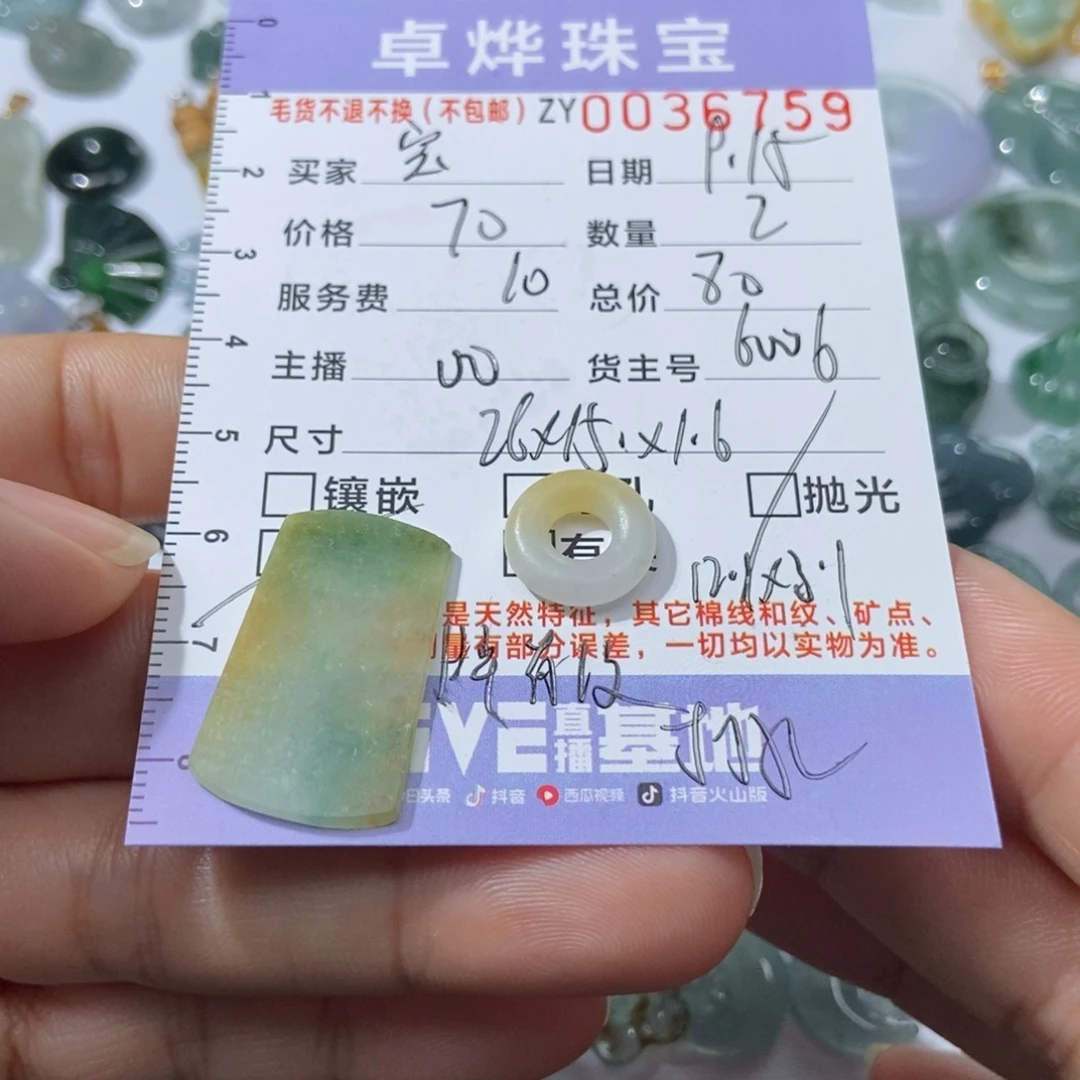 卓烨珠宝
毛货不退不换（不包邮）ZY0036759
买家 宝 日期 9.15
价格 70 数量 2
服务费 10 总价 80
主播 00 货主号 6006
尺寸 26x15.x1.6
镶嵌 孔 抛光
有
12.1x3.1
是天然特征，其它棉线和纹、矿点、
量有部分误差，一切均以实物为准。
直播 基地
头条 抖音 西瓜视频 抖音火山版
0 1 2 3 4 5 6 7